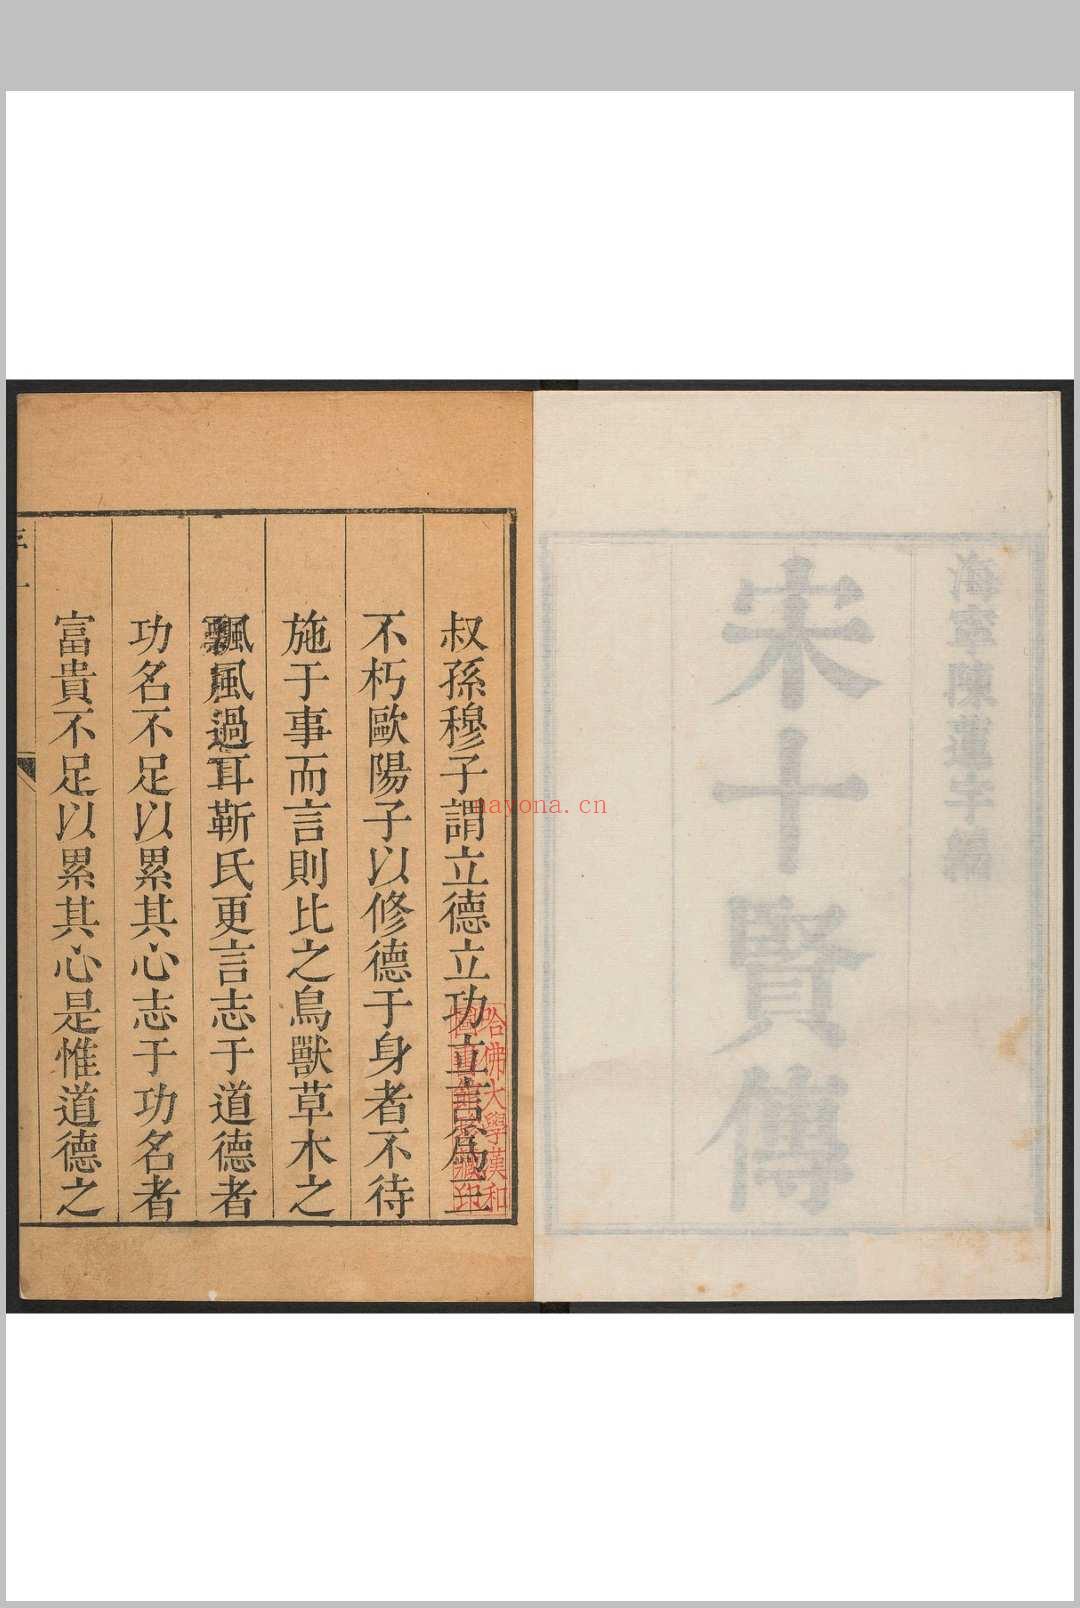 海寧陳
宋十賢傳
叔孫穆子謂立德立功立言爲三
不朽歐陽子以修德于身者不待
施于事而言則比之鳥獸草木之
飄風過耳靳氏更言志于道德者
功名不足以累其心志于功名者
富貴不足以累其心是惟道德之
哈佛大學漢和
圖書館珍藏印
nayona.cn